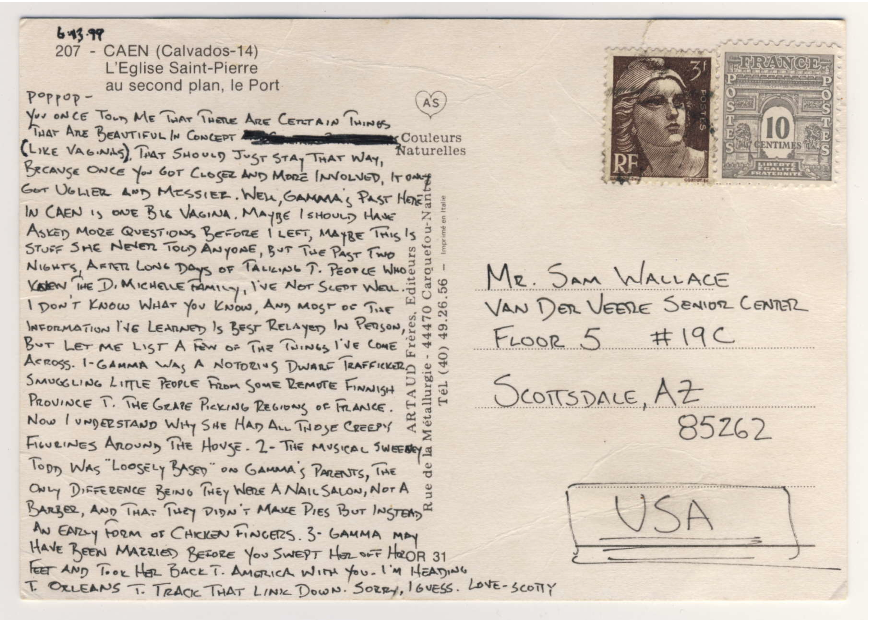 6.13.99
207 - CAEN (Calvados-14)
L'Eglise Saint-Pierre
au second plan, le Port
POPPOP -
YOU ONCE TOLD ME THAT THERE ARE CERTAIN THINGS
THAT ARE BEAUTIFUL IN CONCEPT
(LIKE VAGINAS), THAT SHOULD JUST STAY THAT WAY,
BECAUSE ONCE YOU GOT CLOSER AND MORE INVOLVED, IT ONLY
GOT UGLIER AND MESSIER. WELL, GAMMA'S PAST HERE
IN CAEN IS ONE BIG VAGINA. MAYBE I SHOULD HAVE
ASKED MORE QUESTIONS BEFORE I LEFT, MAYBE THIS IS
STUFF SHE NEVER TOLD ANYONE, BUT THE PAST TWO
NIGHTS, AFTER LONG DAYS OF TALKING T. PEOPLE WHO
KNEW THE D. MICHELLE FAMILY, I'VE NOT SLEPT WELL.
I DON'T KNOW WHAT YOU KNOW, AND MOST OF THE
INFORMATION I'VE LEARNED IS BEST RELAYED IN PERSON,
BUT LET ME LIST A FEW OF THE THINGS I'VE COME
ACROSS. 1- GAMMA WAS A NOTORIUS DWARF TRAFFICKER
SMUGGLING LITTLE PEOPLE FROM SOME REMOTE FINNISH
PROVINCE T. THE GRAPE PICKING REGIONS OF FRANCE.
NOW I UNDERSTAND WHY SHE HAD ALL THOSE CREEPY
FIGURINES AROUND THE HOUSE. 2- THE MUSICAL SWEENEY
TODD WAS "LOOSELY BASED" ON GAMMA'S PARENTS, THE
ONLY DIFFERENCE BEING THEY WERE A NAIL SALON, NOT A
BARBER, AND THAT THEY DIDN'T MAKE PIES BUT INSTEAD
AN EARLY FORM OF CHICKEN FINGERS. 3- GAMMA MAY
HAVE BEEN MARRIED BEFORE YOU SWEPT HER OFF HER
FEET AND TOOK HER BACK T. AMERICA WITH YOU. I'M HEADING
T. ORLEANS T. TRACK THAT LINK DOWN. SORRY, I GUESS. LOVE-SCOTTY
AS
Couleurs
Naturelles
ARTAUD Frères, Editeurs
Rue de la Métallurgie - 44470 Carquefou-Nantes
Tél (40) 49.26.56 - Imprimé en Italie
OR 31
3F
POSTES
RF
FRANCE
POSTES
POSTES
10
CENTIMES
LIBERTÉ
EGALITÉ
FRATERNITÉ
MR. SAM WALLACE
VAN DER VEERE SENIOR CENTER
FLOOR 5 #19C
SCOTTSDALE, AZ
85262
USA